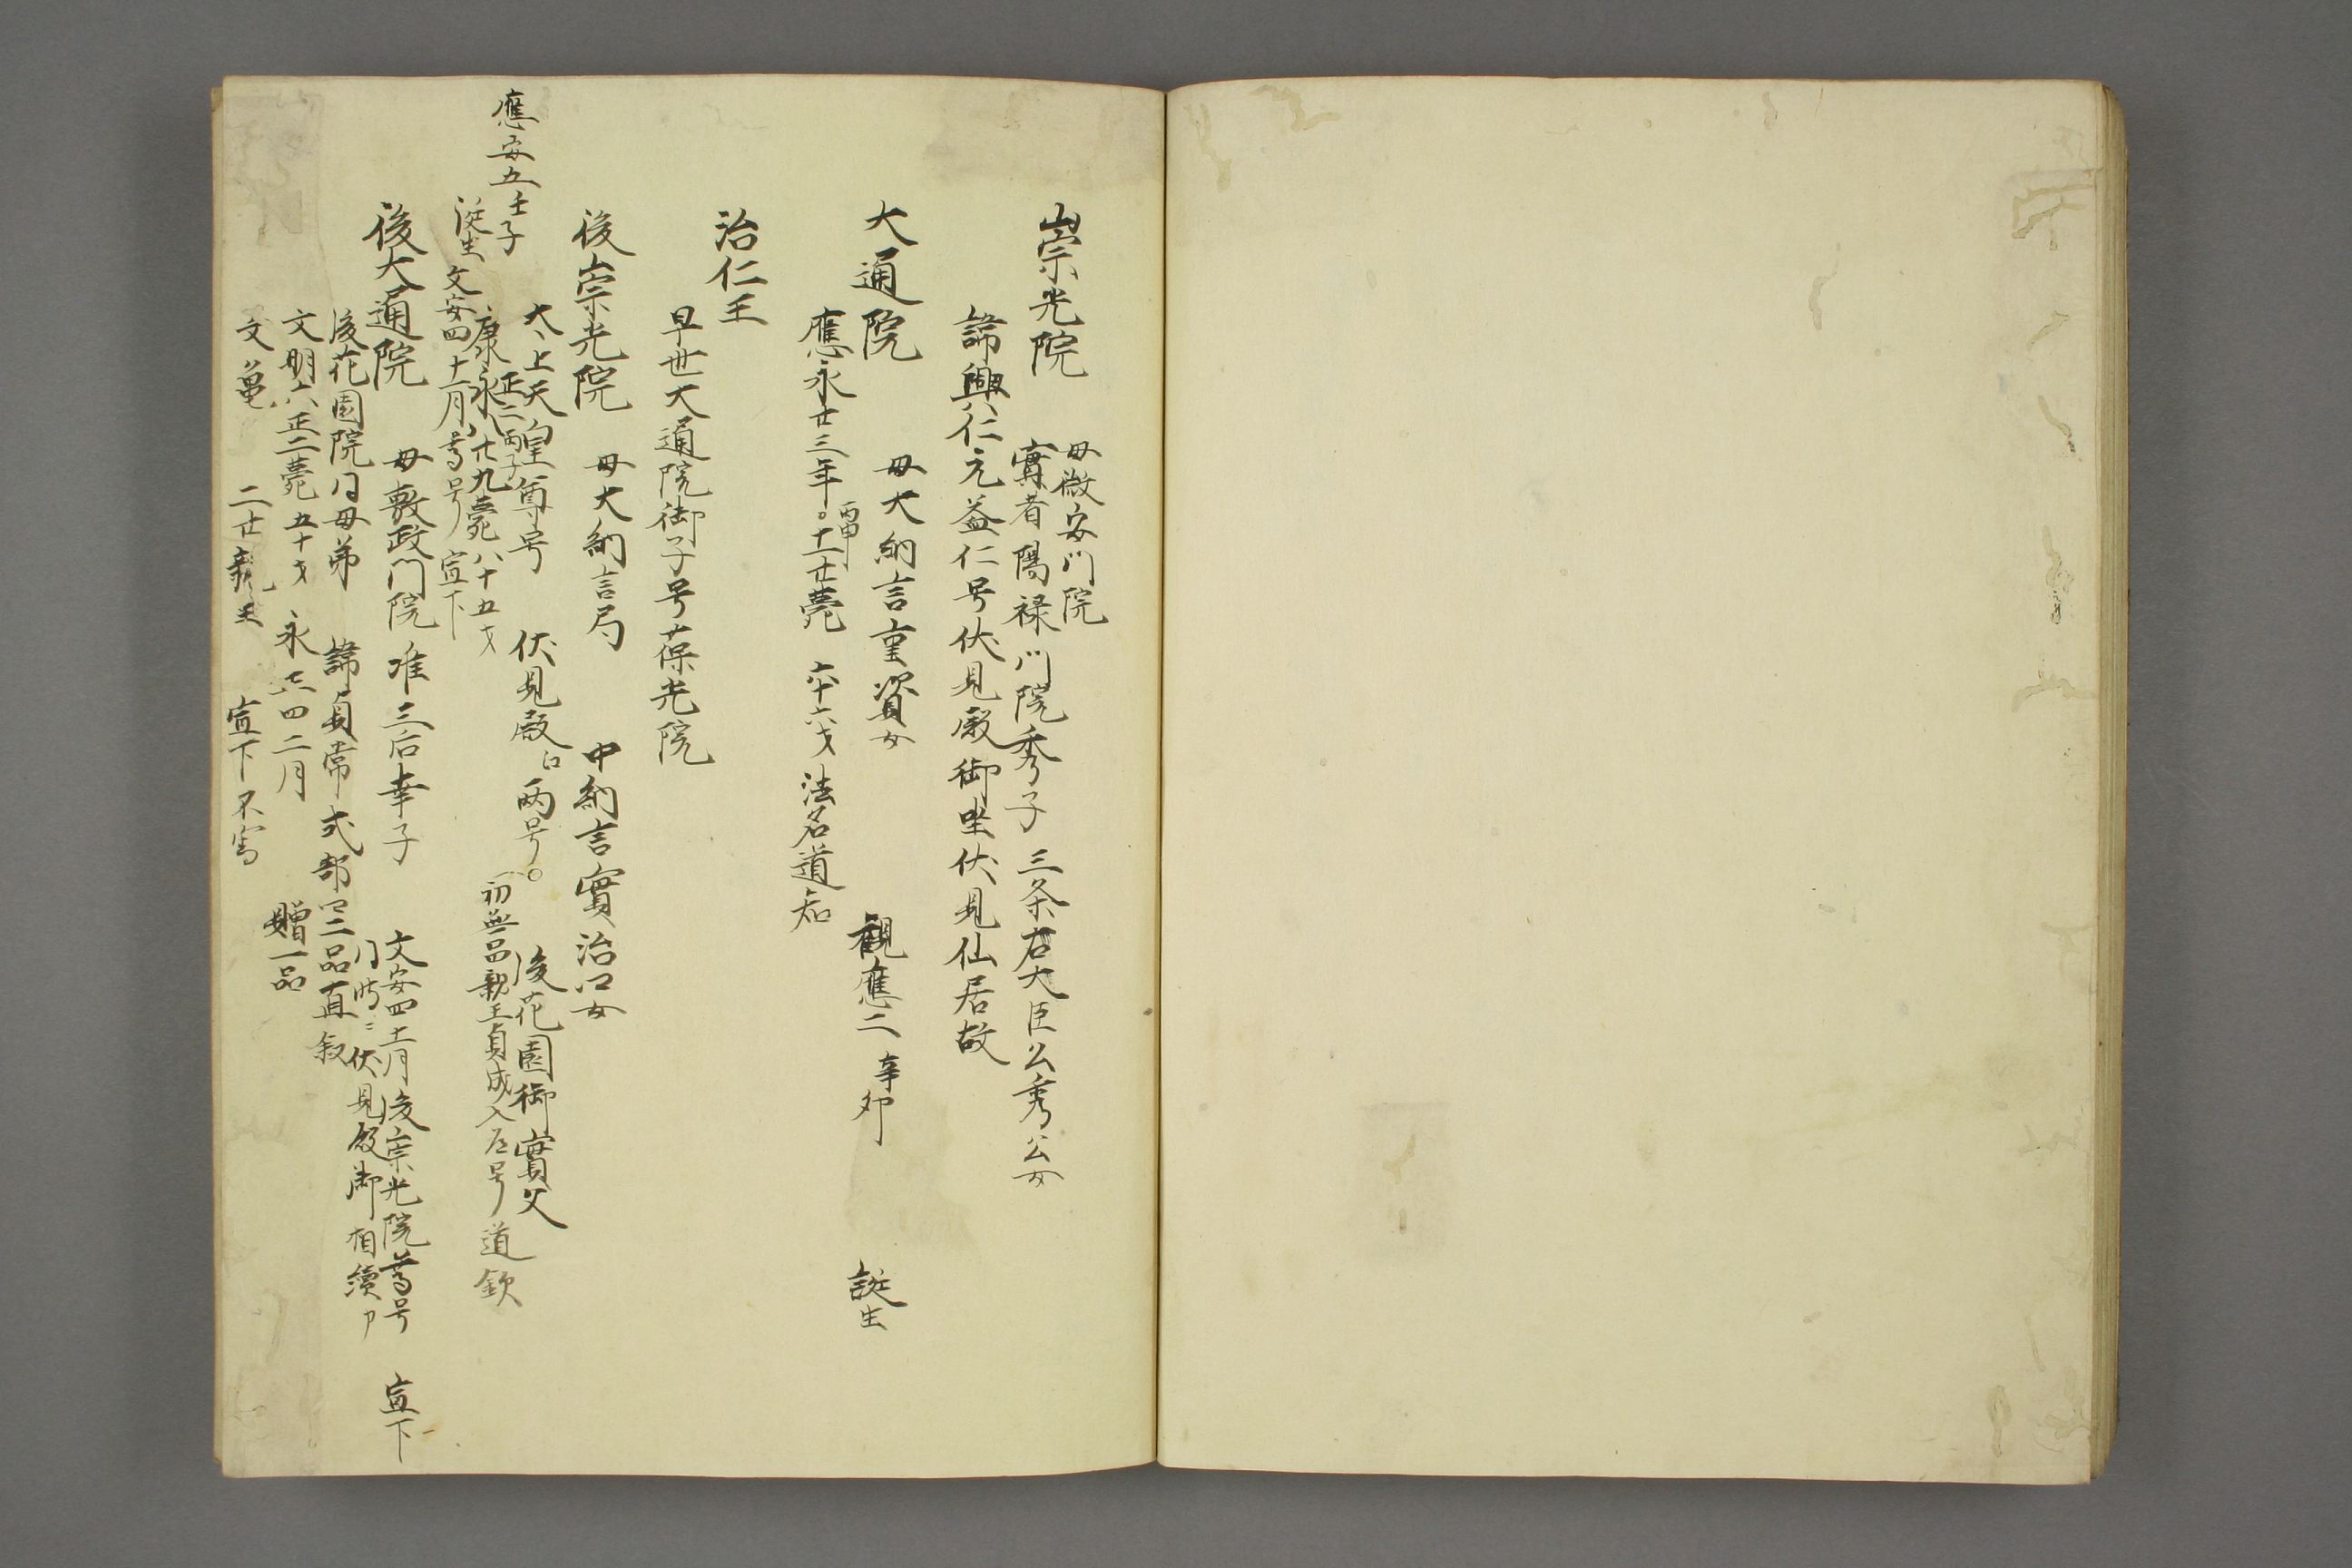 崇光院
母徽安門院
實者陽禄門院秀子 三条右大臣公秀公女
諱興仁元益仁号伏見殿御坐伏見仙居故
大通院 母大納言重資女 觀應二辛卯 誕生
應永廿三年丙申十一廿薨 六十六才 法名道知
治仁王
早世大通院御子号葆光院
後崇光院 母大納言局 中納言實治口女
太上天皇尊号 伏見殿 両号 後花園御實父
初無品親王貞成入道号道欽
應安五壬子
誕生 文安四十一月尊号 宣下
康 永 八廿九薨 八十五才
正二丙子
後大通院 母敷政門院 准三后幸子 文安四十一月後崇光院尊号 宣下
同時ニ伏見殿御相續
後花園院同母弟 諱貞常 式部 二品直叙
文明六正二薨 五十才 永 四二月 贈一品
文亀 二廿親王 宣下不寫